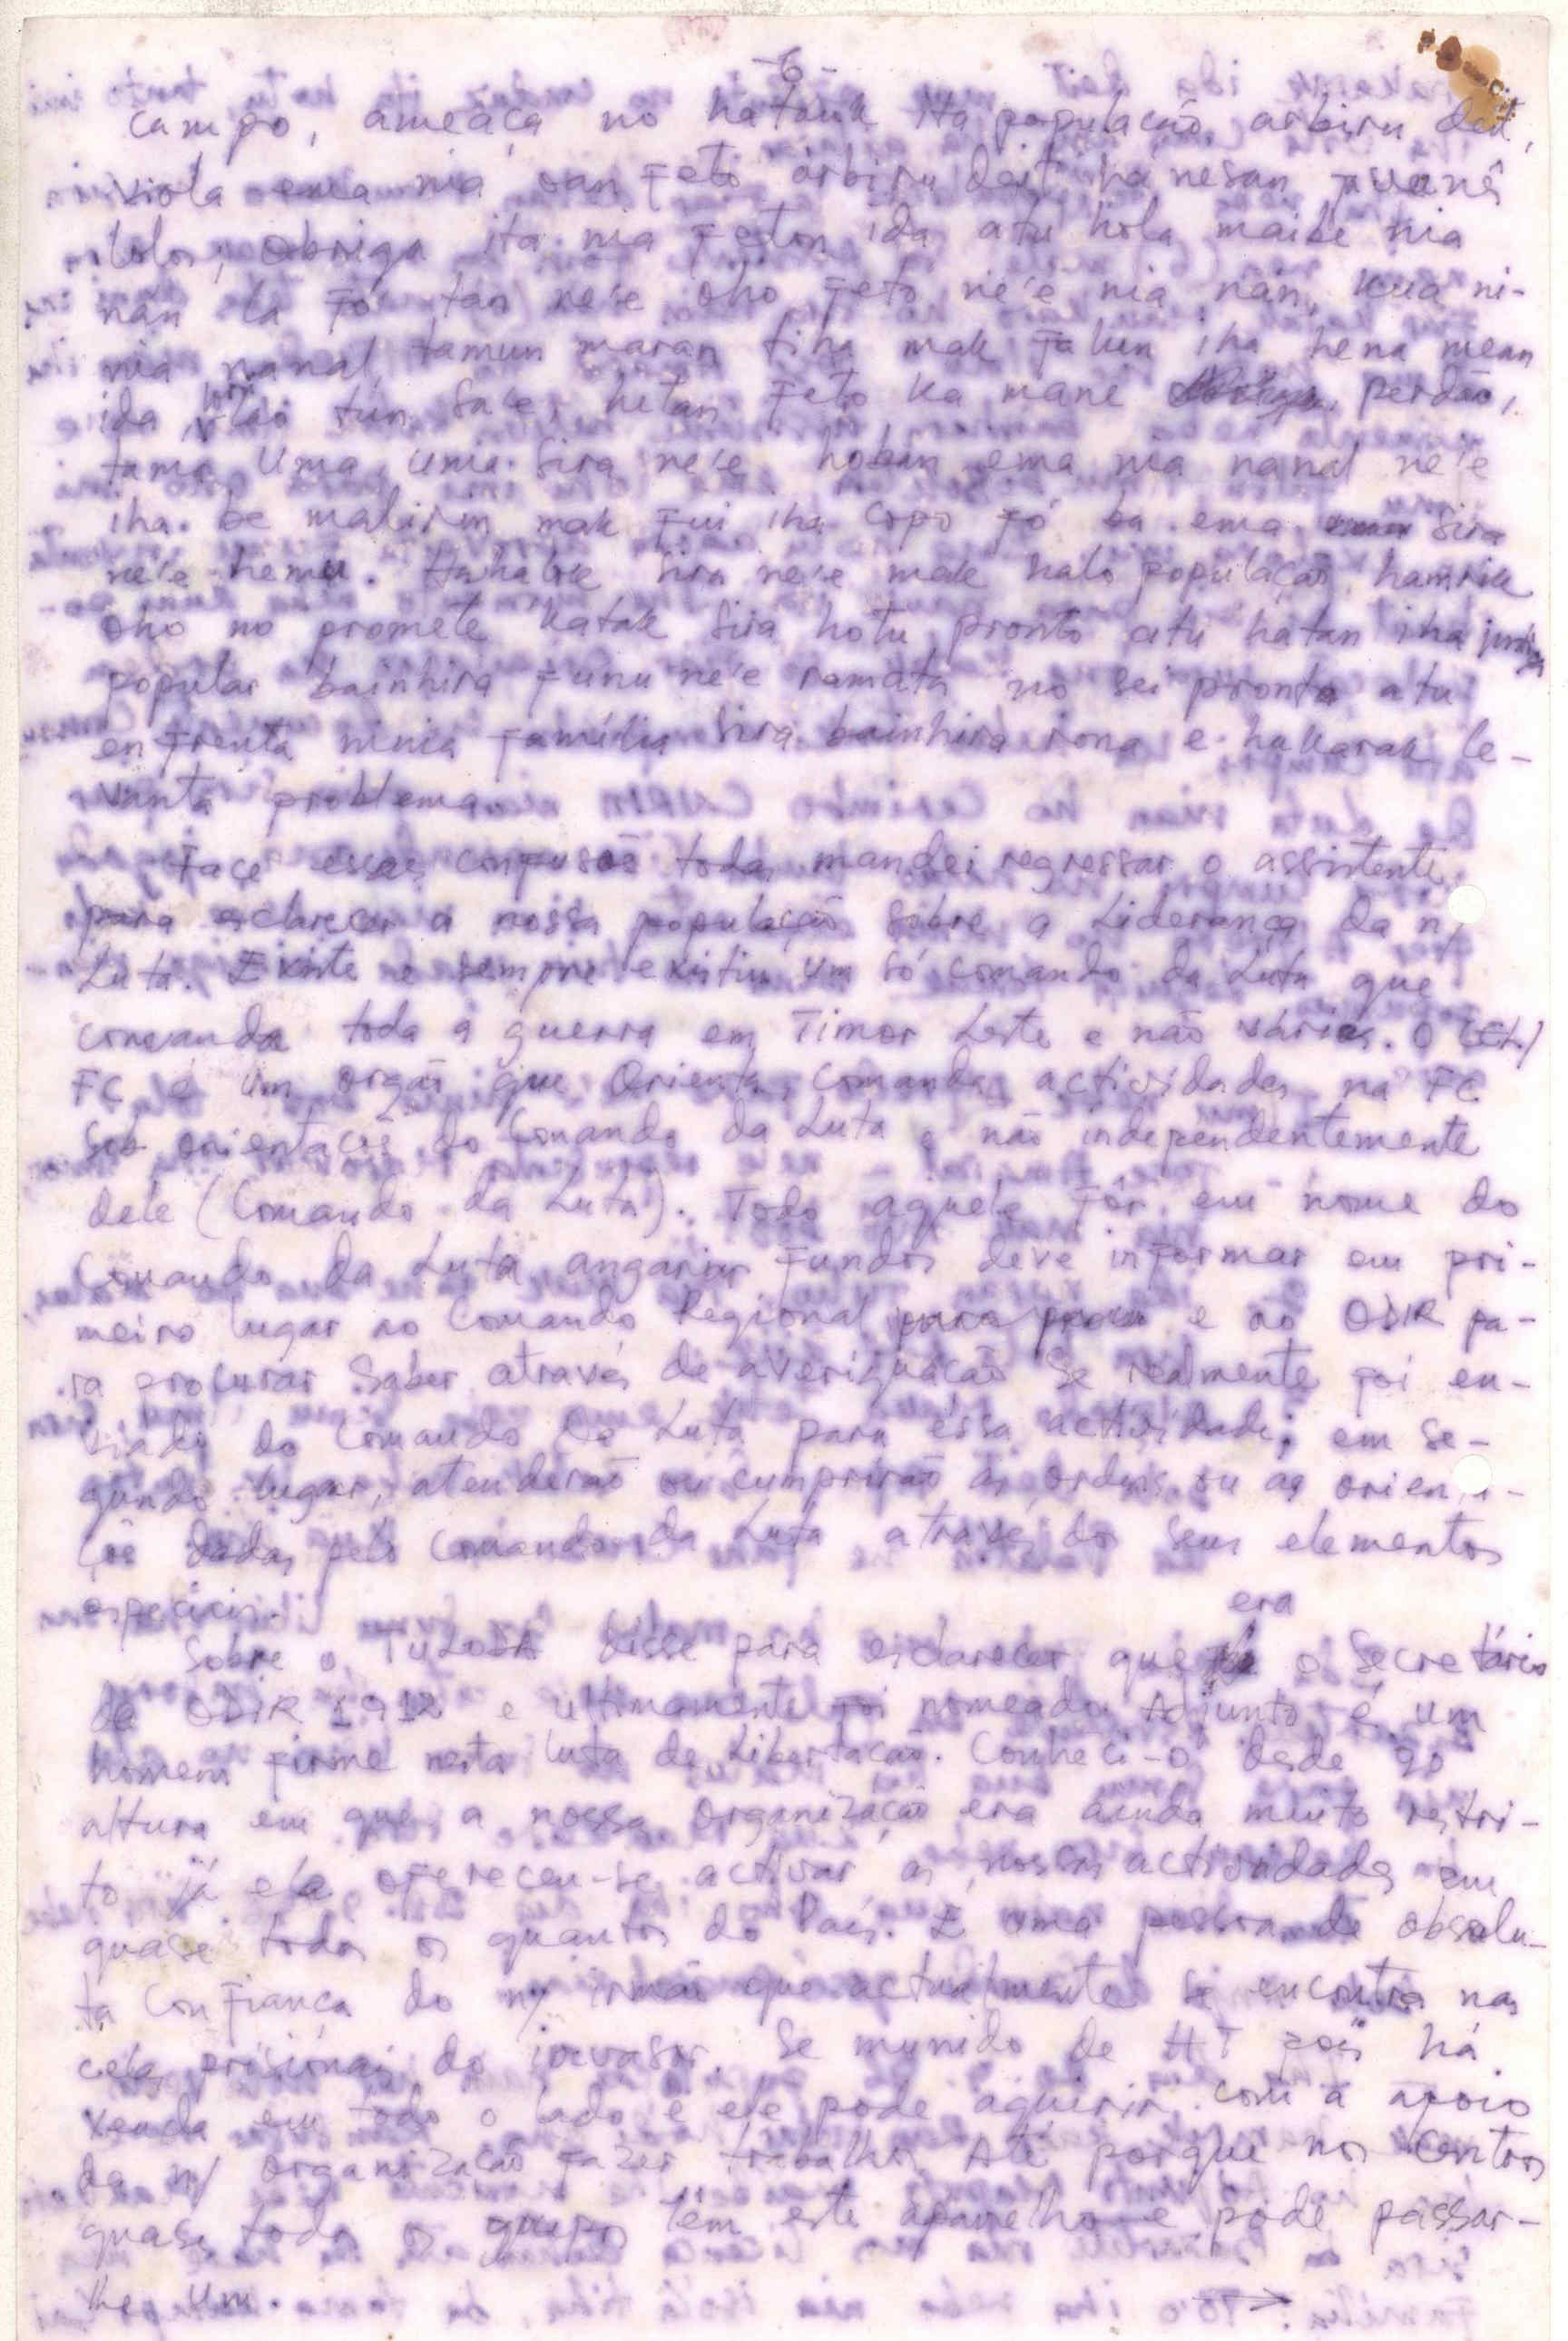 -6-
campo, ameaça no hatauk ita população arbiru deit,
viola ema nia oan feto arbiru deit hanesan
lolos, obriga ita nia feton ida atu hola maibe nia
nan la fó tan ne'e oho feto ne'e nia nan, ni-
nia nanal tamun maran tiha mak falun iha hena mean
ida, hó lao tun sa'e, hetan feto ka mane perdão,
tama uma, uma sira ne'e hoban ema nia nanal ne'e
iha be malirin mak fui iha copo fó ba ema sira
ne'e hemu. Hahalok sira ne'e mak halo população hamrik
oho no promete katak sira hotu pronto atu hatan iha
popular bainhira funu ne'e ramata no sei pronto atu
enfrenta ninia família sira bainhira rona e hakarak le-
vanta problema.
Face essas confusoẽ todas mandei regressar o assistente
para esclarecer a nossa população sobre a Liderança da n/
Luta. Existe e sempre existiu um só comando da Luta que
comanda toda a guerra em Timor Leste e não vários. O CEL/
FC é um orgaõ que Orienta, comanda actividades na FC
sob orientaçoẽ do Comando da Luta e não independentemente
dele (Comando da Luta). Todo aquele fôr em nome do
Comando da Luta angariar fundos deve informar em pri-
meiro lugar ao Comando Regional e ao ODIR pa-
ra procurar saber através de averiguação se realmente foi en-
viado do Comando da Luta para essa actividade; em se-
gundo lugar, atenderão ou cumprirão as ordens ou as orienta-
çoẽ dadas pelo Comando da Luta através dos seus elementos
especiais.
era
Sobre o TULODA disse para esclarecer que o Secretário
da ODIR 1912 e ultimamente foi nomeado Adjunto é um
homem firme nesta luta de Libertação. Conheci-o desde 90
altura em que a nossa Organização era ainda muito restri-
to já ele ofereceu-se activar as nossas actividades em
quase todos os quantos do País. É uma pessoa de absolu-
ta confiança do n/ irmão que actualmente se encontra nas
celas prisionais do invasor. Se munido de HT pois há
venda em todo o lado e ele pode aquirir com a apoio
da n/ Organização fazer trabalhos. Até porque nos Centros
quase todos os grupos têm este aparelho e pode passar-
lhe um.